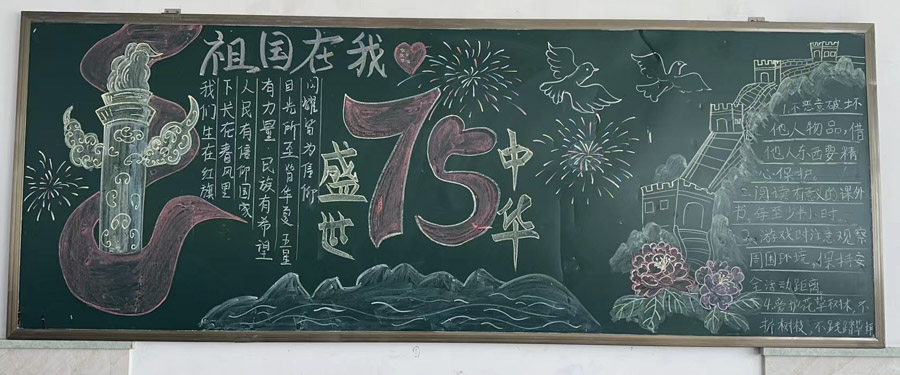 祖国在我
我们生在红旗
下长在春风里
人民有信仰国家
有力量，民族有希望
目光所至皆华夏五星
闪耀皆为信仰
盛世
75
中华
1.不恶意破坏
他人物品，借
他人东西要精
心保护。
二、阅读有益的课外
书，每至少半小时。
3、游戏时注意观察
周围环境，保持安
全活动距离
4.爱护花草树木，不
折树枝，不践踏草坪